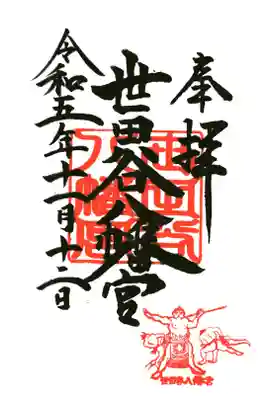 奉拝
世田谷八幡宮
令和五年十一月十二日
世田谷八幡宮
世田谷八幡宮